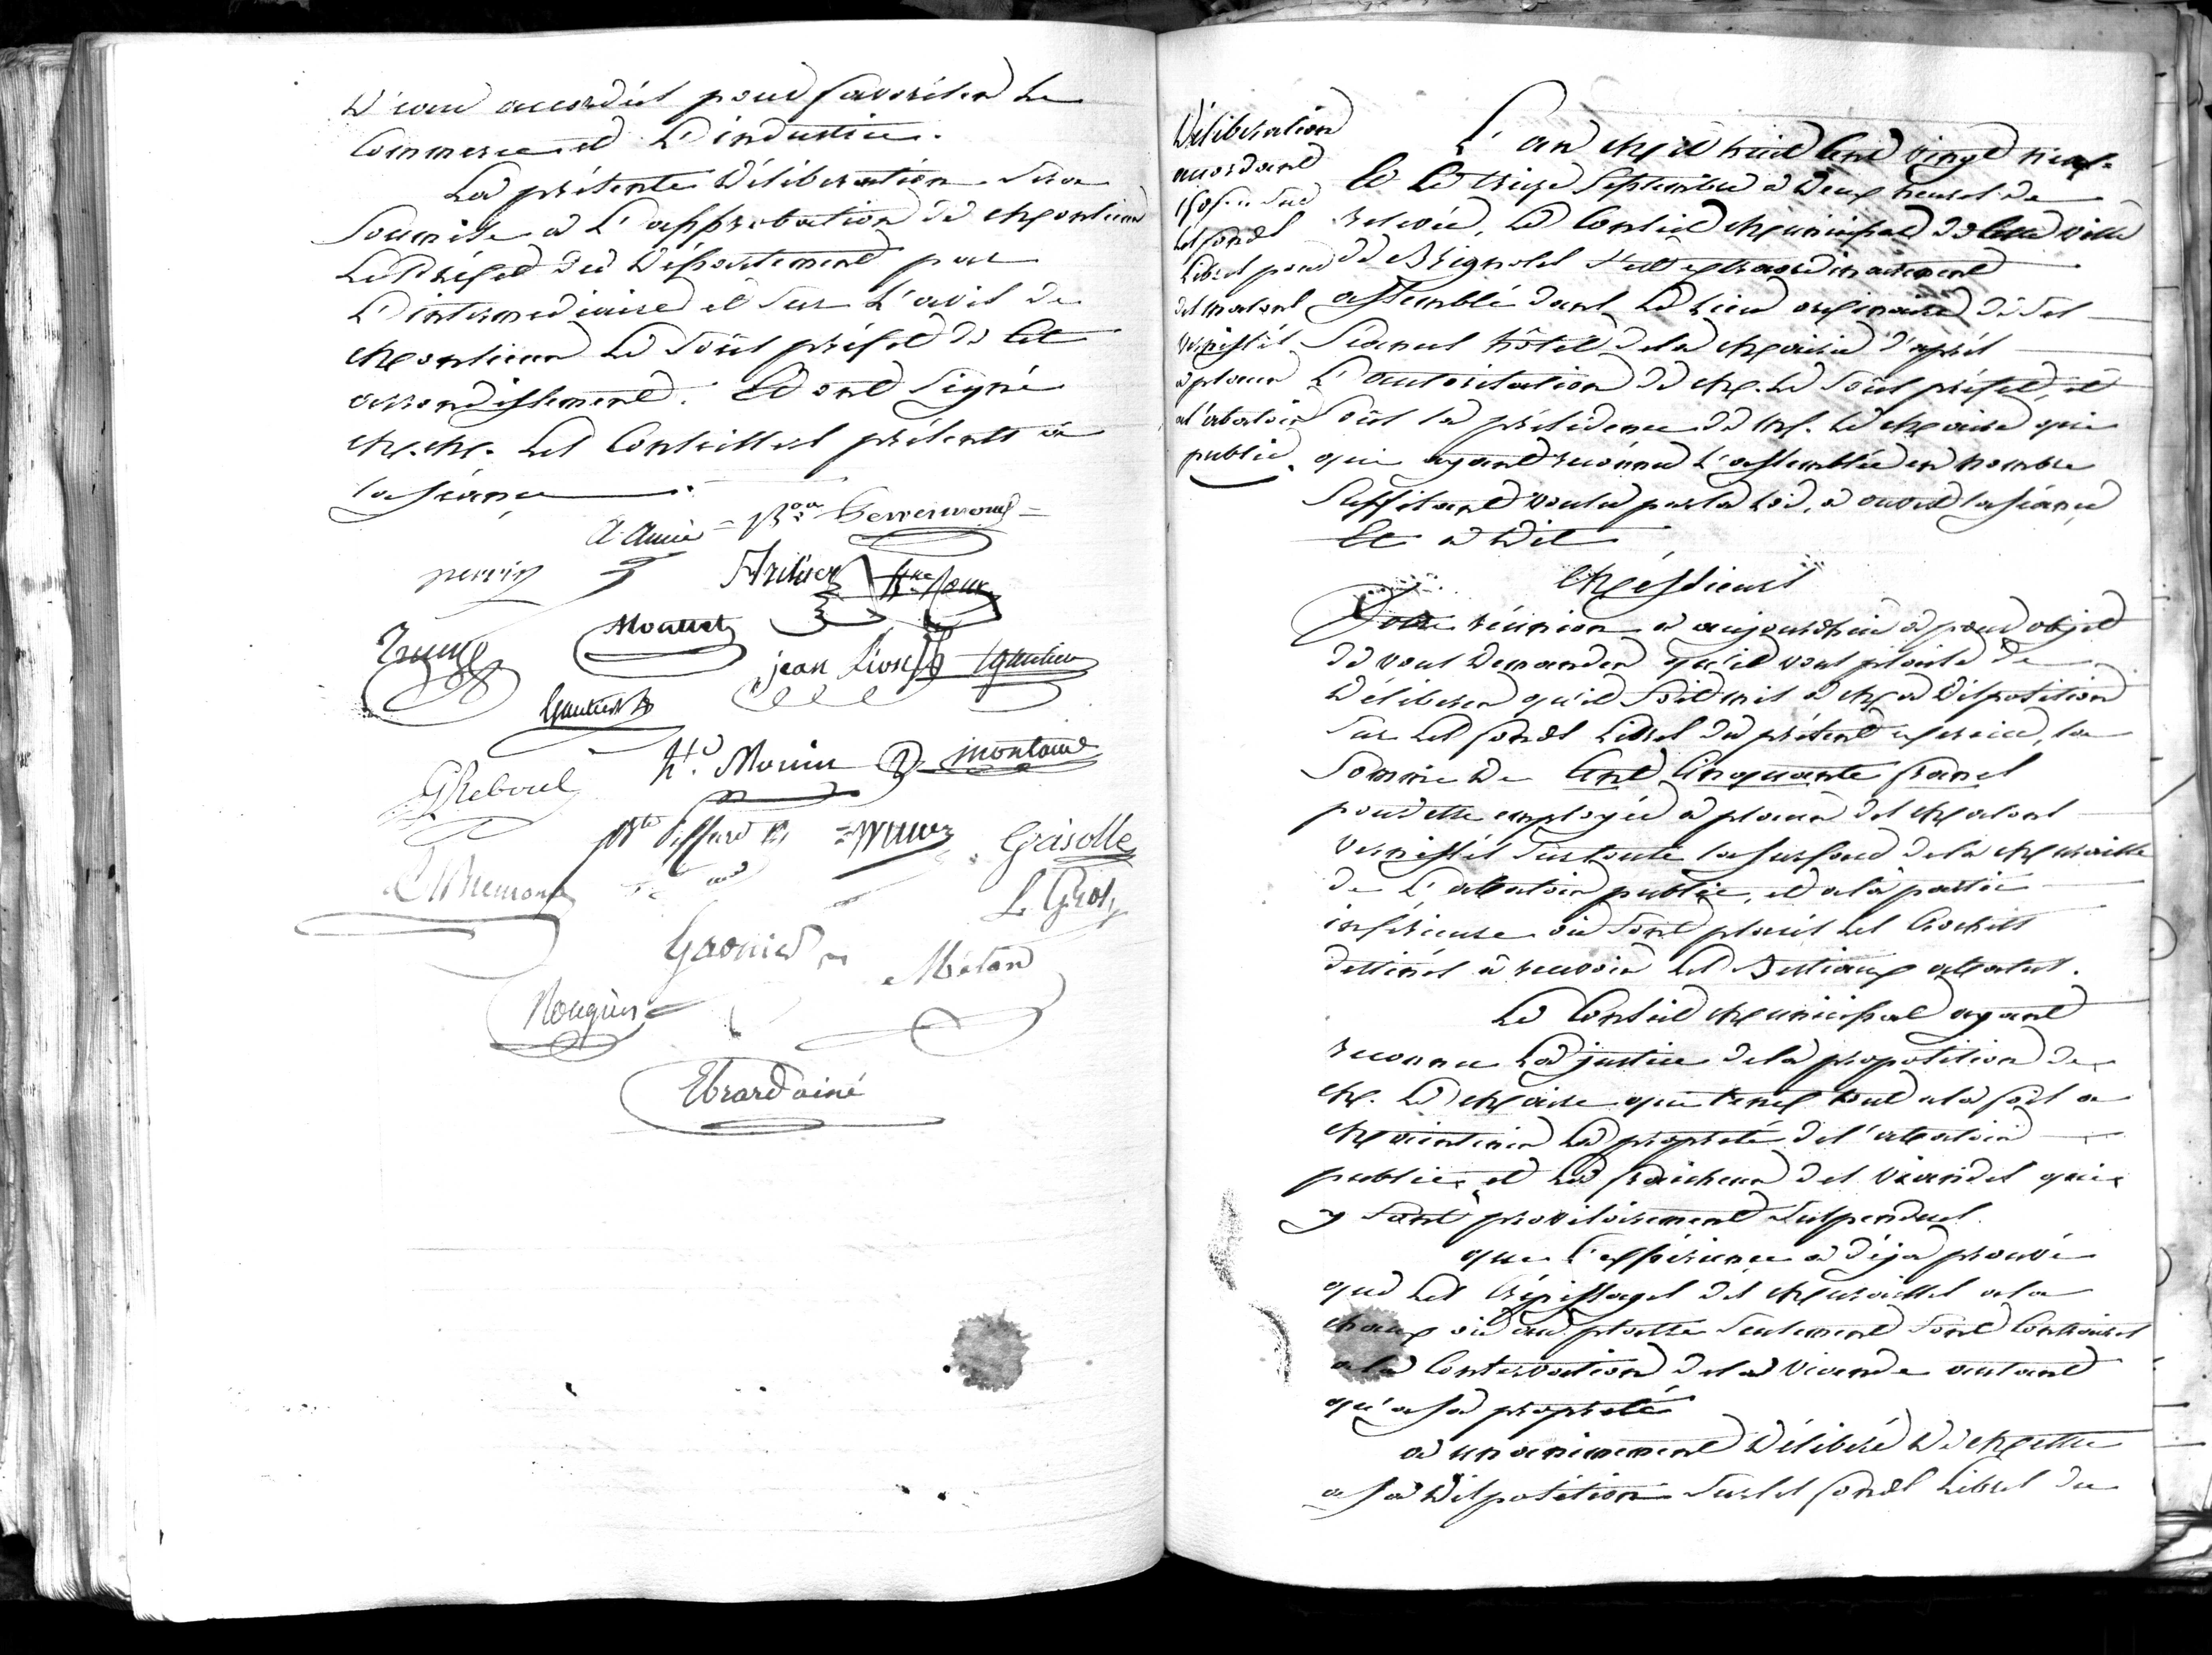 D'eau accordés pour favoriser le
Commerce et L'industrie.
La présente Délibération sera
Soumise à L'approbation de Monsieur
Le Préfet du Département par
L'intermediaire et sur L'avis de
Monsieur Le Sous préfet de cet
arrondissement. Et ont Signé
M.M. Les Conseillers présents à
la séance
A. Amic
perrin
Mouttet
jean Lion
Gautier
Reboul
Morin
montaud
Grisolle
Bremond
L. Gros
Garnier
Méton
Rougier
Ebrard ainé
Délibération
accordant
150f. sur
Les fonds
Libres pour
des malons
vernissés
à placer
à l'abatoir
public.
L'an Mil huit Cent vingt neuf
et Le treize Septembre à Deux heures de
relevée, Le Conseil Municipal de cette ville
de Brignoles s'est extraordinairement
assemblé dans Le Lieu ordinaire de ses
Séances hôtel dela Mairie d'après
L'autorisation de M. Le Sous préfet, et
Sous la présidence de M. Le Maire qui
qui ayant reconnu L'assemblée en nombre
Suffisant voulu par la Loi, a ouvert la séance
Et a Dit
Messieurs
Votre réunion d'aujourdhui a pour objet
de vous Demander qu'il vous plaise de
Déliberer qu'il Soit mis à Ma Disposition
Sur Les fonds Libres du présent exercice, la
Somme de Cent Cinquante francs
pour être employée à placer des Malons
vernissés sur toute la surface dela Muraille
de L'abatoir public, et à la partie
inférieure où sont placés les Crochets
destinés à recevoir Les Bestiaux abatus.
Le Conseil Municipal ayant
reconnu La justice dela proposition de
M. Le Maire qui tend tout à la fois à
Maintenir La propreté del'abatoir
public, et La fraicheur des viandes qui
y sont provisoirement suspendues.
que L'expérience a déjà prouvé
que Les Crépissages des Murailles à la
chaux ou au platre seulement sont Contraires
à la Conservation dela viande autant
qu'à sa propreté
a unanimement Délibéré De Mettre
a sa Disposition sur les fonds Libres du